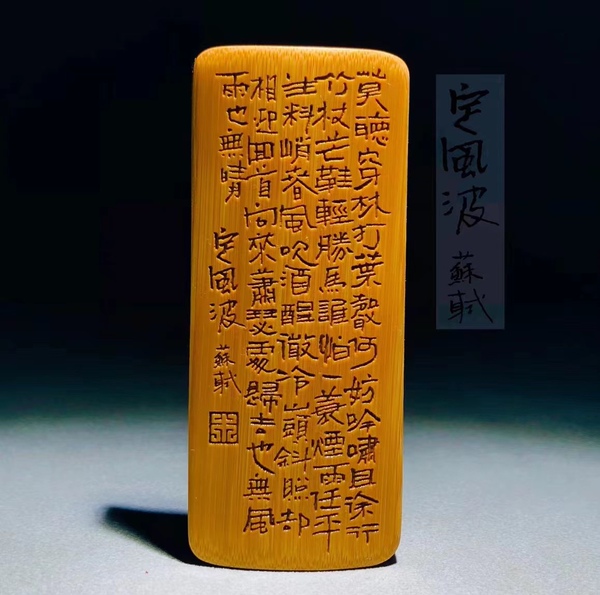 莫聽穿林打葉聲何妨吟嘯且徐行
竹杖芒鞋輕勝馬誰怕一蓑煙雨任平
生料峭春風吹酒醒微冷山頭斜照却
相迎回首向來蕭瑟處歸去也無風
雨也無晴
定風波 蘇軾
定風波 蘇軾